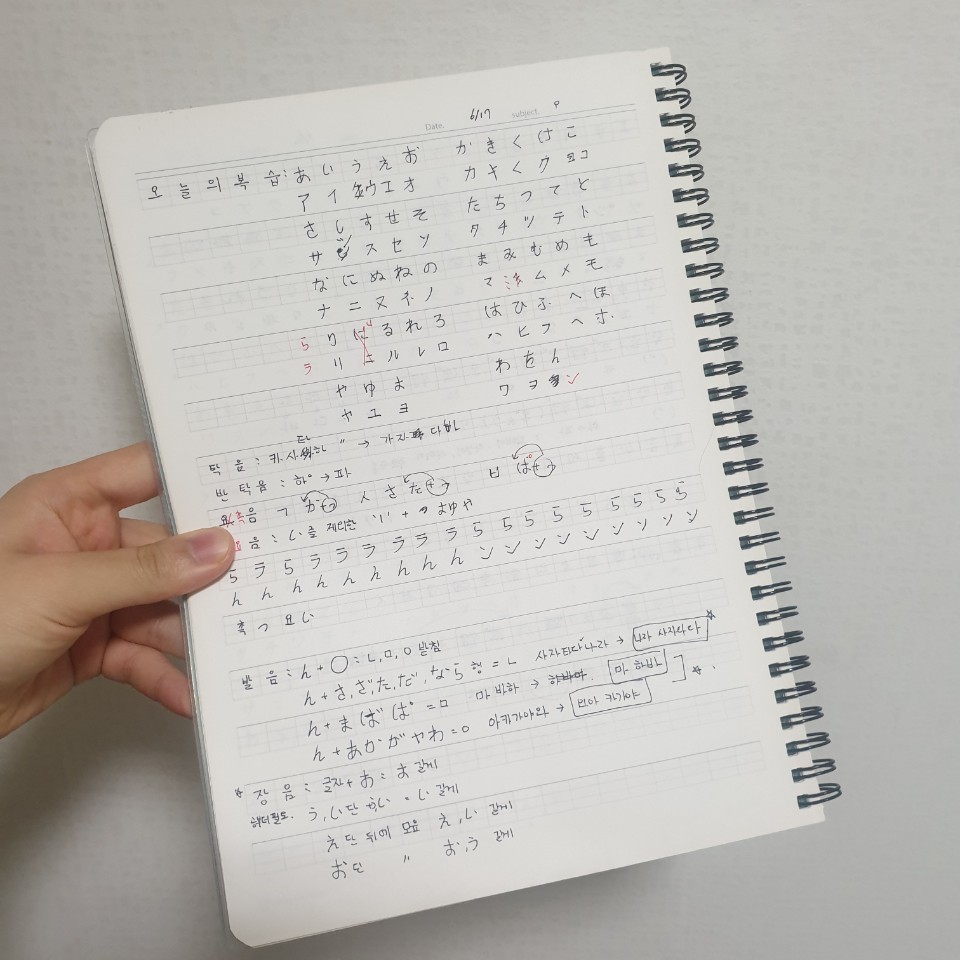 Date. 6/17 subject. 9
오늘의 복습: あ い う え お か き く け こ
ア イ ウ エ オ カ キ く ク コ
さ し す せ そ た ち つ て と
サ ス セ ソ タ チ ツ テ ト
な に ぬ ね の ま み む め も
ナ ニ ヌ ネ ノ マ ミ ム メ モ
ら り る れ ろ は ひ ふ へ ほ
ラ リ ル レ ロ ハ ヒ フ ヘ ホ
や ゆ よ わ を ん
ヤ ユ ヨ ワ ヲ
탁 음 : 카사타하 〃 → 가자다바
반 탁음 : 하° → 파
음 ㄱ か ㅅ さ た ㅂ ぱ
음 : い를 제외한 'い' + っ よゆや
ら ラ ら ラ ラ ラ ラ ラ ら ら ら ら ら ら ら ら
ん ん ん ん ん ん ん ん ん ン ン ン ン ン ン ン ン
촉 っ 요 い
발 음 : ん + ○ : ㄴ, ㅁ, ㅇ 받침
ん + さ, ざ, た, だ, なら 행 = ㄴ 사자타다나라 → 나라 사자타다
ん + ま ば ぱ = ㅁ 마바하 → 마 하바
ん + あ か が や わ = ㅇ 아카가야와 → 카가야
* 장 음 : 글자 + お : お 길게
う, い단 い 길게
え단 뒤에 모음 え, い 길게
お단 〃 お, う 길게